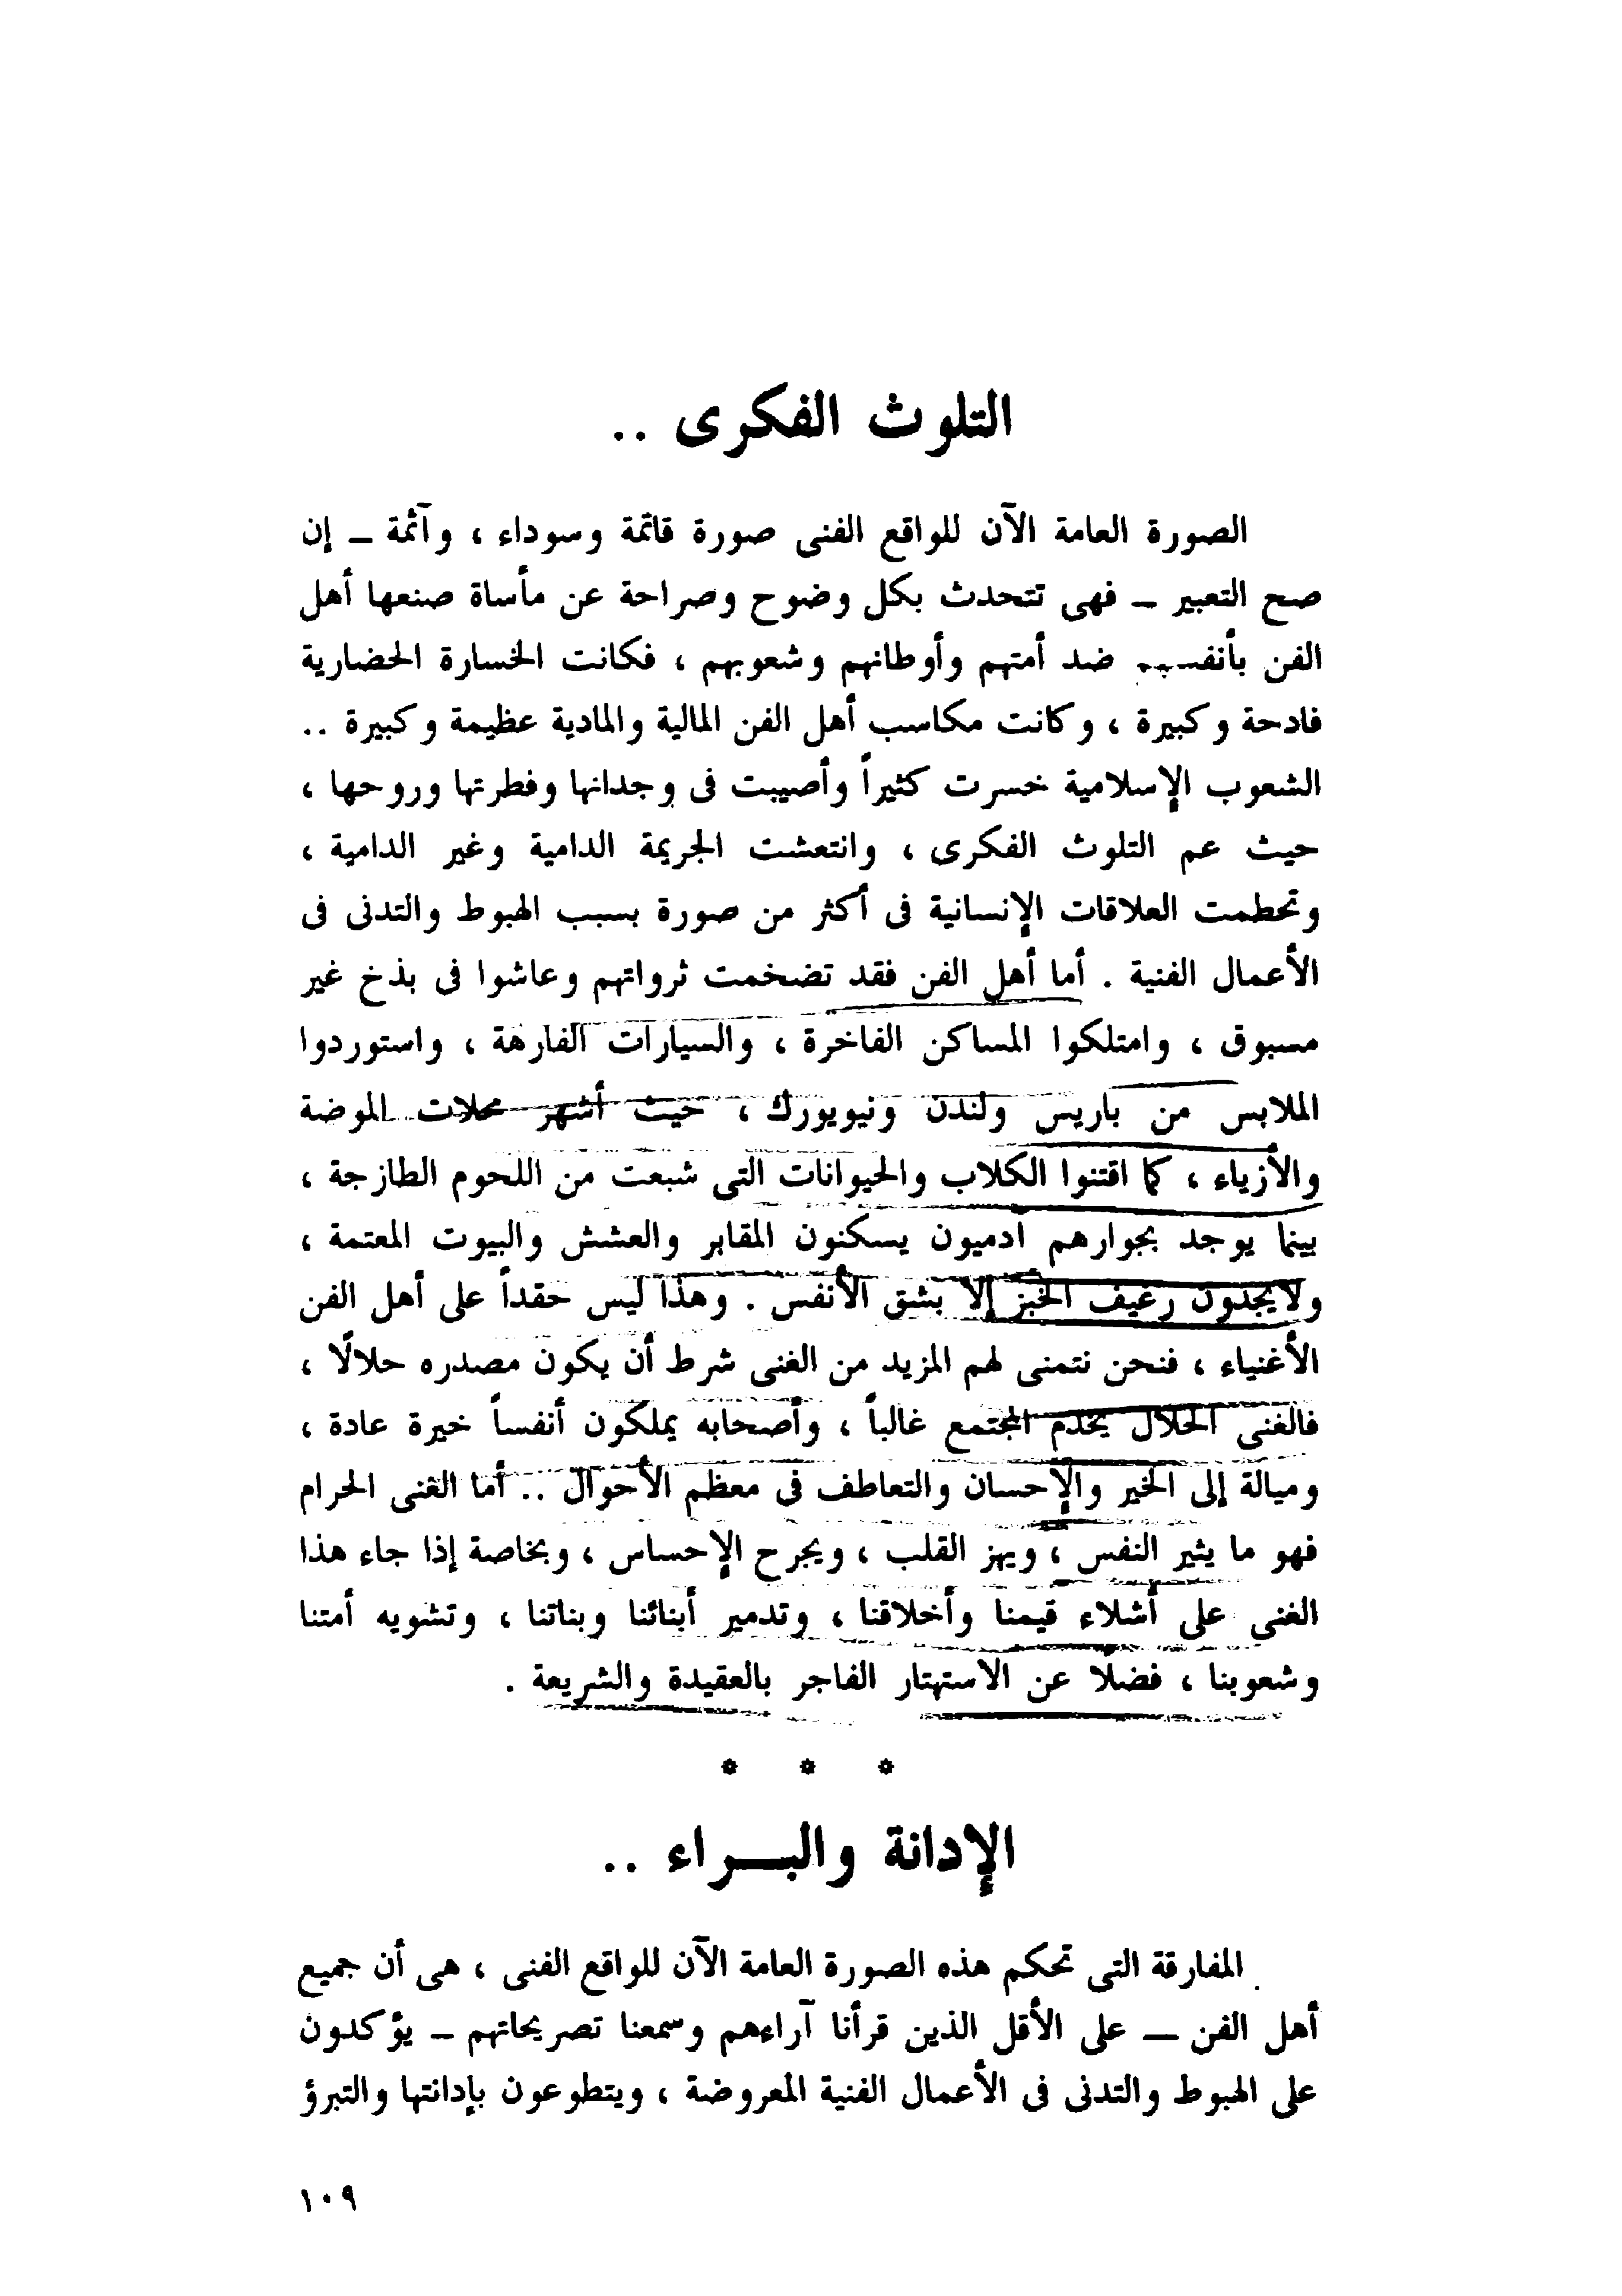 التلوث الفكرى ..
الصورة العامة الآن للواقع الفنى صورة قاتمة وسوداء ، وآثمة – إن
صح التعبير – فهى تتحدث بكل وضوح وصراحة عن مأساة صنعها أهل
الفن بأنفسهم ضد أمتهم وأوطانهم وشعوبهم ، فكانت الخسارة الحضارية
فادحة وكبيرة ، وكانت مكاسب أهل الفن المالية والمادية عظيمة وكبيرة ..
الشعوب الإسلامية خسرت كثيراً وأصيبت فى وجدانها وفطرتها وروحها ،
حيث عم التلوث الفكرى ، وانتعشت الجريمة الدامية وغير الدامية ،
وتحطمت العلاقات الإنسانية فى أكثر من صورة بسبب الهبوط والتدنى فى
الأعمال الفنية . أما أهل الفن فقد تضخمت ثرواتهم وعاشوا فى بذخ غير
مسبوق ، وامتلكوا المساكن الفاخرة ، والسيارات الفارهة ، واستوردوا
الملابس من باريس ولندن ونيويورك ، حيث أشهر محلات الموضة
والأزياء ، كما اقتنوا الكلاب والحيوانات التى شبعت من اللحوم الطازجة ،
بينما يوجد بجوارهم آدميون يسكنون المقابر والعشش والبيوت المعتمة ،
ولايجدون رغيف الخبز إلا بشق الأنفس . وهذا ليس حقداً على أهل الفن
الأغنياء ، فنحن نتمنى لهم المزيد من الغنى شرط أن يكون مصدره حلالًا ،
فالغنى الحلال يخدم المجتمع غالباً ، وأصحابه يملكون أنفساً خيرة عادة ،
وميالة إلى الخير والإحسان والتعاطف فى معظم الأحوال .. أما الغنى الحرام
فهو ما يثير النفس ، ويهز القلب ، ويجرح الإحساس ، وبخاصة إذا جاء هذا
الغنى على أشلاء قيمنا وأخلاقنا ، وتدمير أبنائنا وبناتنا ، وتشويه أمتنا
وشعوبنا ، فضلًا عن الاستهتار الفاجر بالعقيدة والشريعة .
* * *
الإدانة والبـــراء ..
المفارقة التى تحكم هذه الصورة العامة الآن للواقع الفنى ، هى أن جميع
أهل الفن — على الأقل الذين قرأنا آراءهم وسمعنا تصريحاتهم – يؤكدون
على الهبوط والتدنى فى الأعمال الفنية المعروضة ، ويتطوعون بإدانتها والتبرؤ
١٠٩